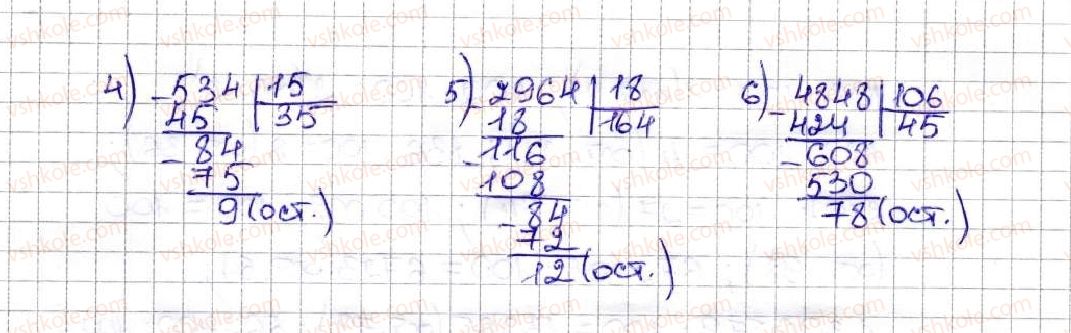 4) - 534 | 15
45 | 35
- 84
75
9 (ост.)
5) - 2964 | 18
18 | 164
- 116
108
- 84
72
12 (ост.)
6) - 4848 | 106
424 | 45
- 608
530
78 (ост.)